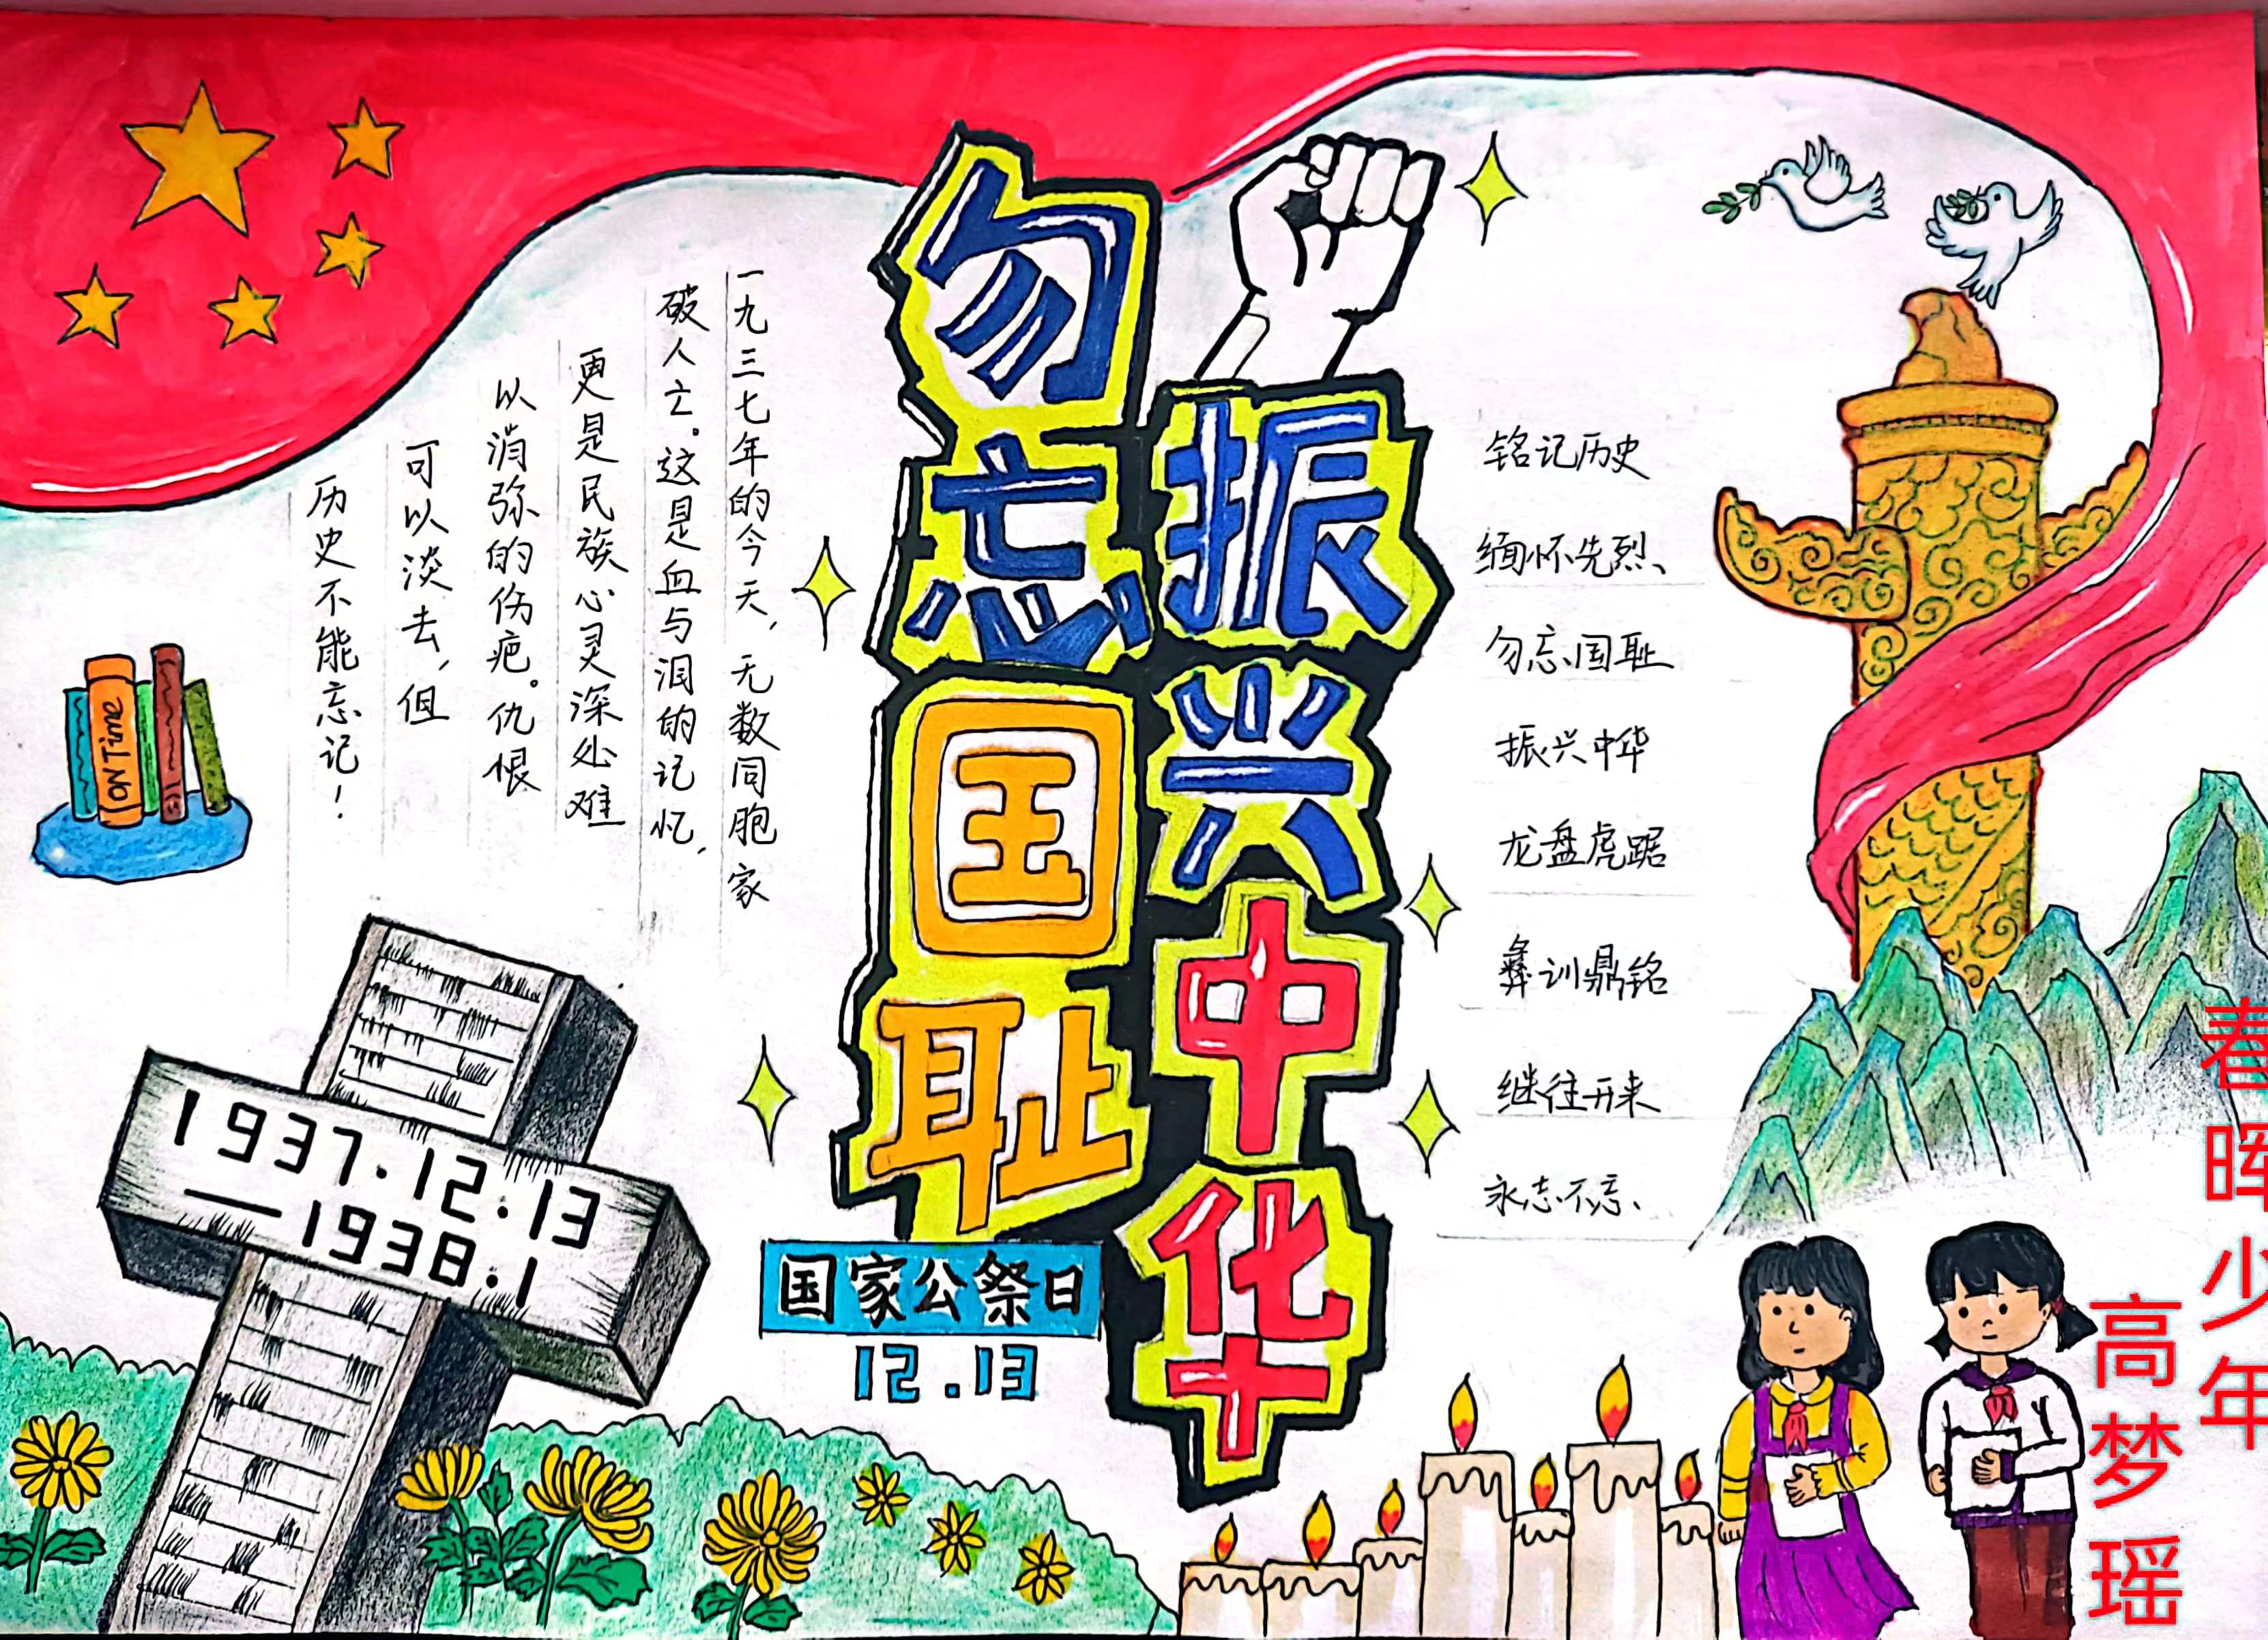 勿忘国耻
振兴中华
一九三七年的今天,无数同胞家
破人亡。这是血与泪的记忆,
更是民族心灵深处难
以消弥的伤疤。仇恨
可以淡去,但
历史不能忘记!
ON Time
1937.12.13
—1938.1
国家公祭日
12.13
铭记历史
缅怀先烈、
勿忘国耻
振兴中华
龙盘虎踞
彝训鼎铭
继往开来
永志不忘、
春晖少年
高梦瑶